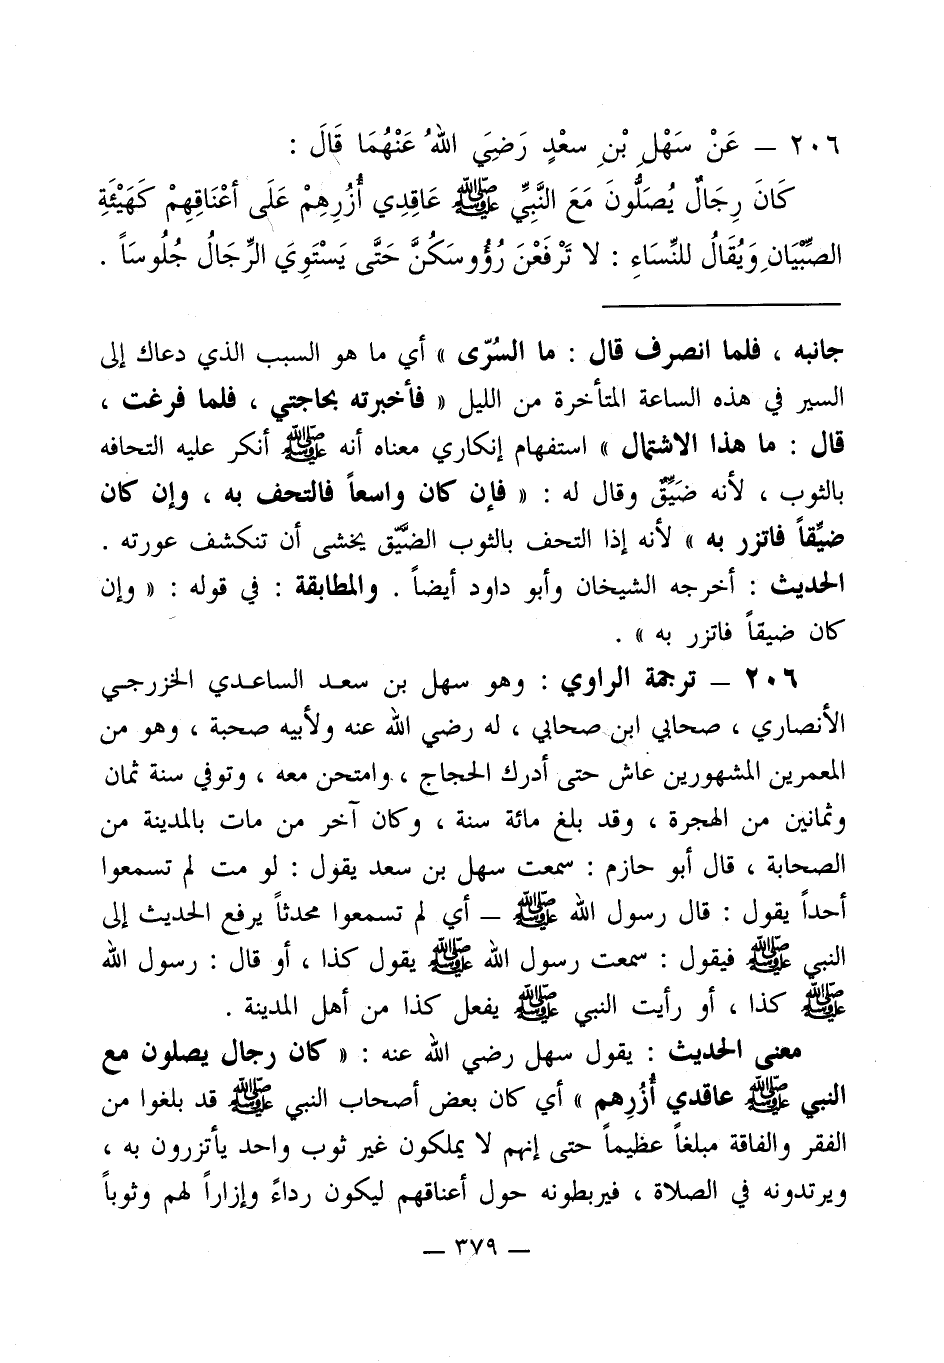 ٢٠٦ – عَنْ سَهْلِ بْنِ سعْدٍ رَضِيَ اللهُ عَنْهُمَا قَالَ :
كَانَ رِجَالٌ يُصَلُّونَ مَعَ النَّبِيِّ ﷺ عَاقِدِي أُزُرِهِمْ عَلَى أعْنَاقِهِمْ كَهَيْئَةِ
الصِّبْيَانِ وَيُقَالُ للنِّسَاءِ : لا تَرْفَعْنَ رُؤُوسَكُنَّ حَتَّى يَسْتَوِيَ الرِّجَالُ جُلُوسَاً .
جانبه ، فلما انصرف قال : ما السُرّى » أي ما هو السبب الذي دعاك إلى
السير في هذه الساعة المتأخرة من الليل « فأخبرته بحاجتي ، فلما فرغت ،
قال : ما هذا الاشتمال » استفهام إنكاري معناه أنه ﷺ أنكر عليه التحافه
بالثوب ، لأنه ضَيِّقٌ وقال له : « فإن كان واسعاً فالتحف به ، وإن كان
ضيِّقاً فاتزر به » لأنه إذا التحف بالثوب الضَّيّق يخشى أن تنكشف عورته .
الحديث : أخرجه الشيخان وأبو داود أيضاً . والمطابقة : في قوله : « وإن
كان ضيقاً فاتزر به » .
٢٠٦ – ترجمة الراوي : وهو سهل بن سعد الساعدي الخزرجي
الأنصاري ، صحابي ابن صحابي ، له رضي الله عنه ولأبيه صحبة ، وهو من
المعمرين المشهورين عاش حتى أدرك الحجاج ، وامتحن معه ، وتوفي سنة ثمان
وثمانين من الهجرة ، وقد بلغ مائة سنة ، وكان آخر من مات بالمدينة من
الصحابة ، قال أبو حازم : سمعت سهل بن سعد يقول : لو مت لم تسمعوا
أحداً يقول : قال رسول الله ﷺ – أي لم تسمعوا محدثاً يرفع الحديث إلى
النبي ﷺ فيقول : سمعت رسول الله ﷺ يقول كذا ، أو قال : رسول الله
ﷺ كذا ، أو رأيت النبي ﷺ يفعل كذا من أهل المدينة .
معنى الحديث : يقول سهل رضي الله عنه : « كان رجال يصلون مع
النبي ﷺ عاقدي أُزُرِهم » أي كان بعض أصحاب النبي ﷺ قد بلغوا من
الفقر والفاقة مبلغاً عظيماً حتى إنهم لا يملكون غير ثوب واحد يأتزرون به ،
ويرتدونه في الصلاة ، فيربطونه حول أعناقهم ليكون رداءً وإزاراً لهم وثوباً
– ٣٧٩ –